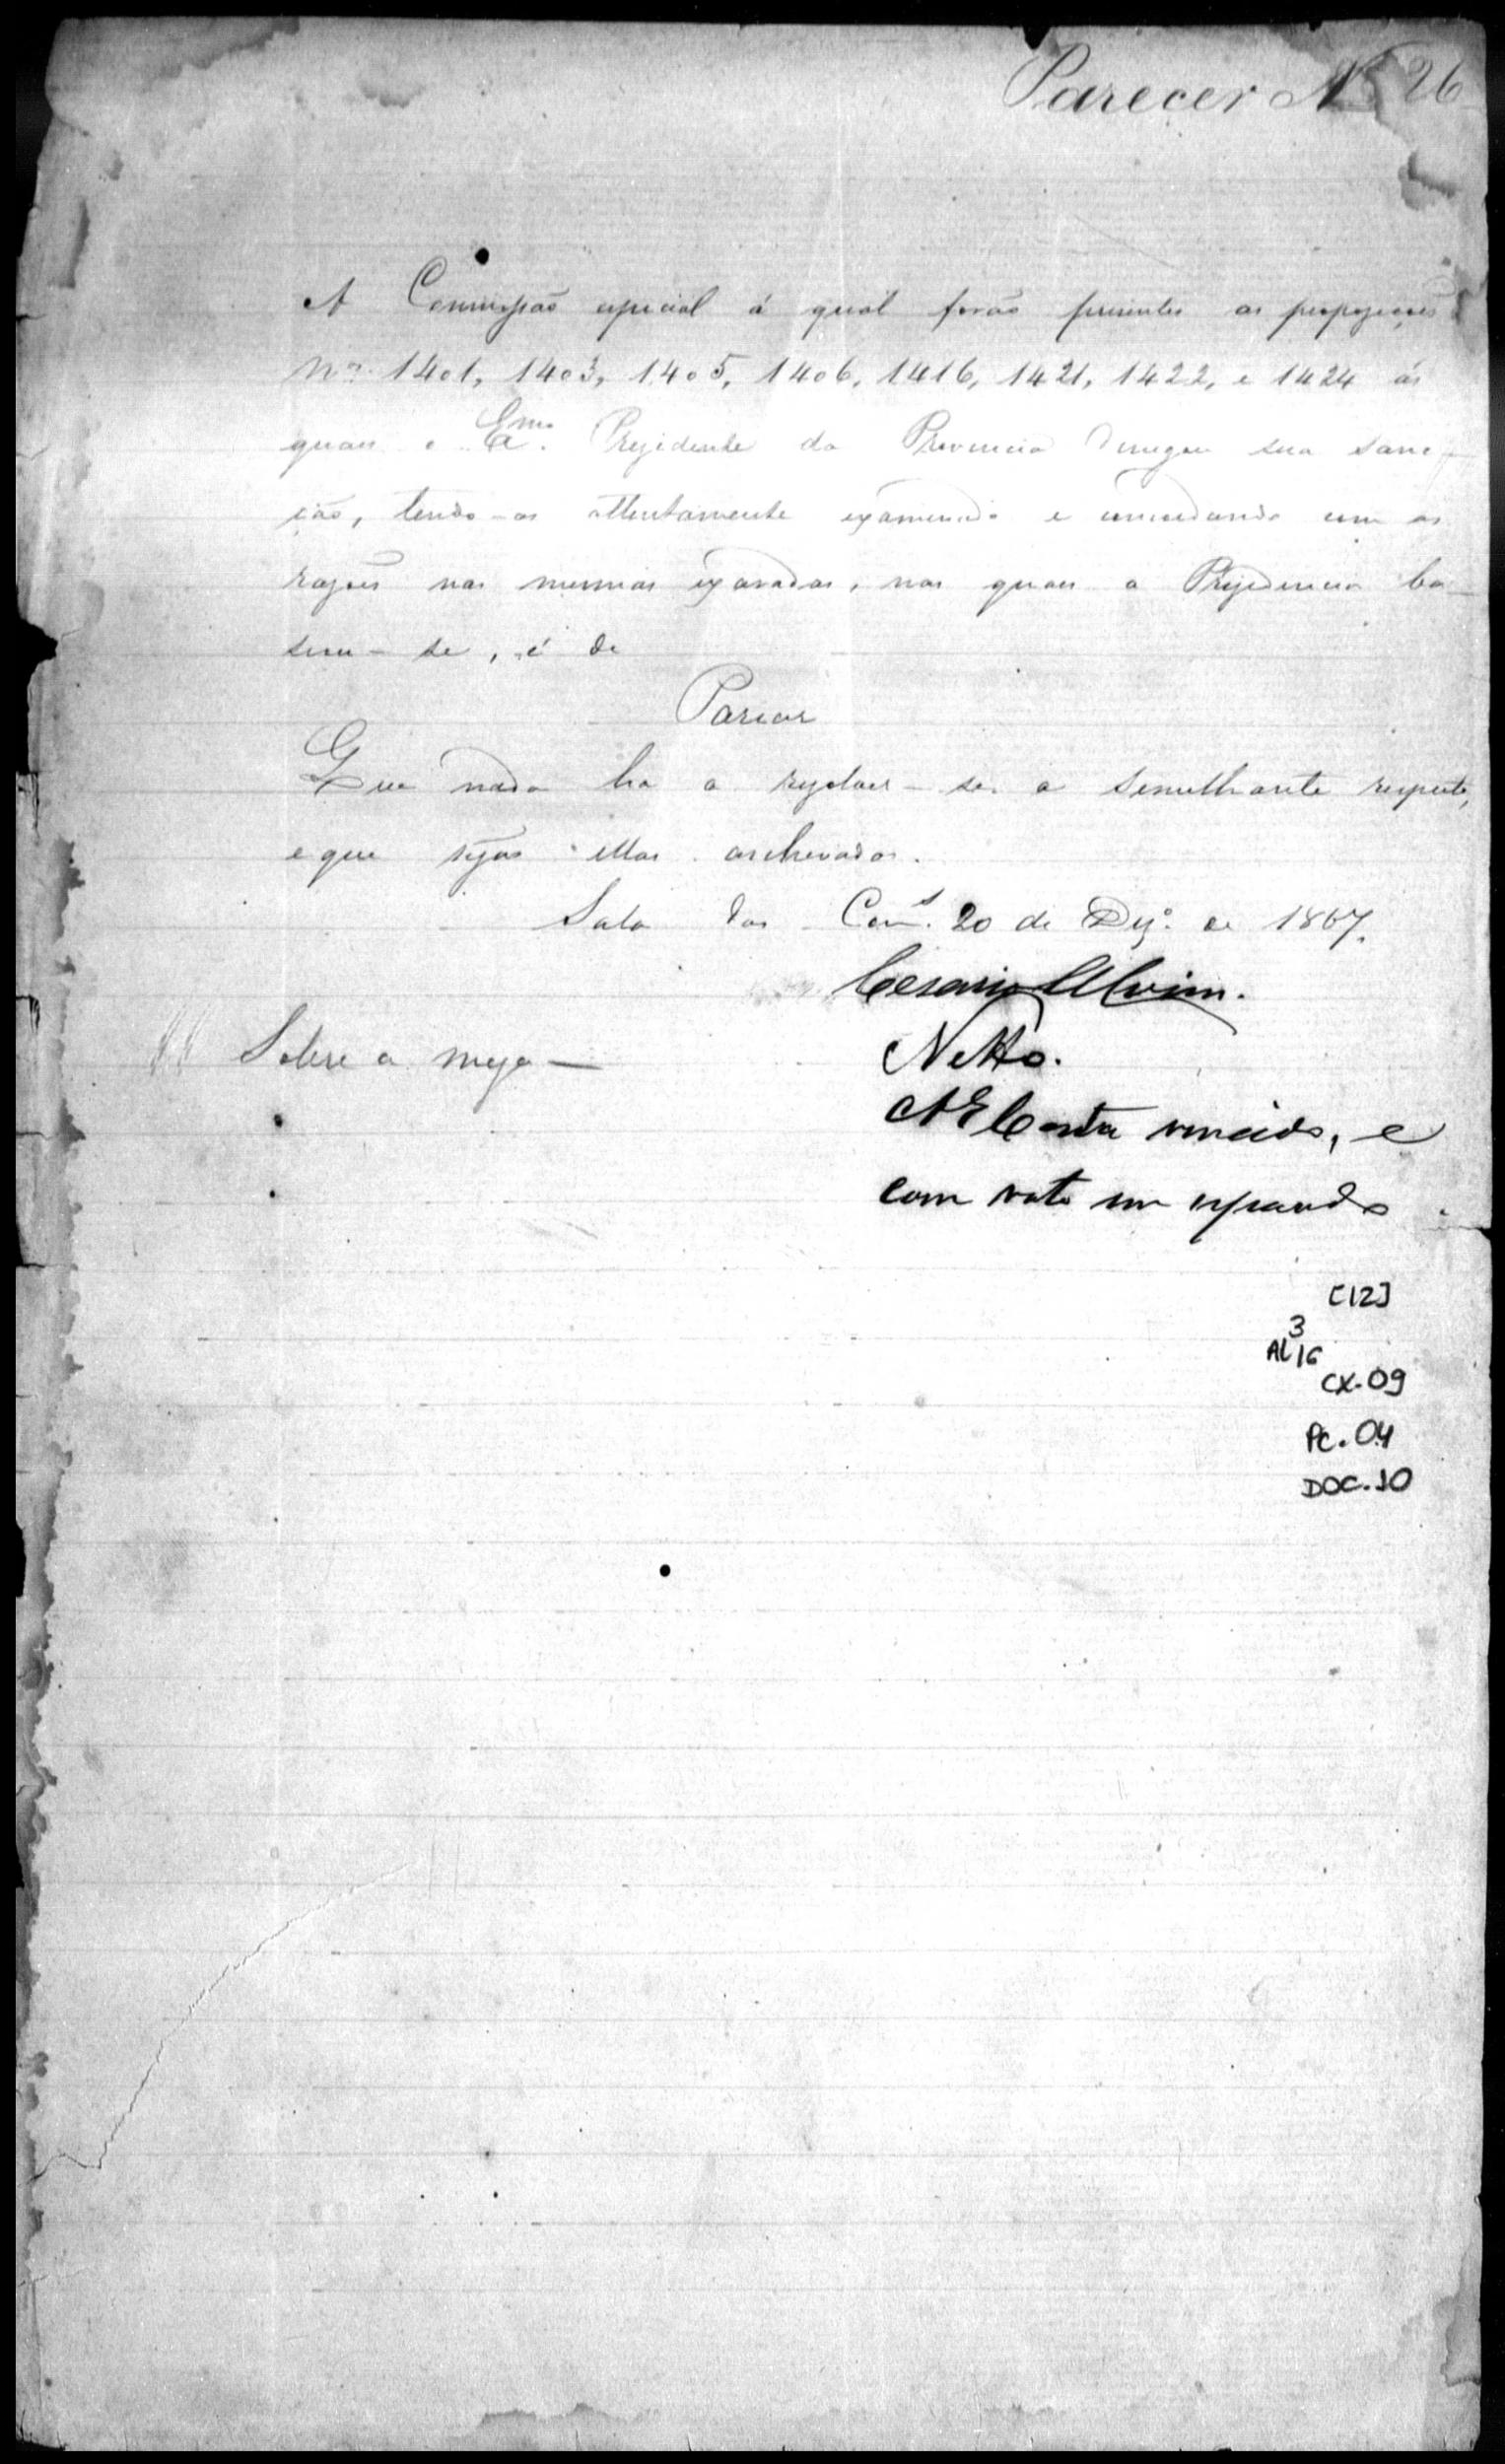 Parecer Nº 26
A Commissão especial á qual forão presentes as proposições
Nos. 1401, 1403, 1405, 1406, 1416, 1421, 1422, e 1424 ás
quaes o Exmo. Prezidente da Provincia denegou sua sanc-
ção, tendo-as attentamente examinado e concordando com as
razões nas mesmas exaradas, nas quaes a Prezidencia ba-
seou-se, é de
Parecer
Que nada ha a rezolver-se a semelhante respeito,
e que sejão ellas archivadas.
Sala das Com.s 20 de Dezº. de 1867.
Cesario Alvim.
Sobre a meza —
Netto.
Costa vencido, e
com voto em separado
[12]
3
AL 16
CX. 09
PC. 04
DOC. 10